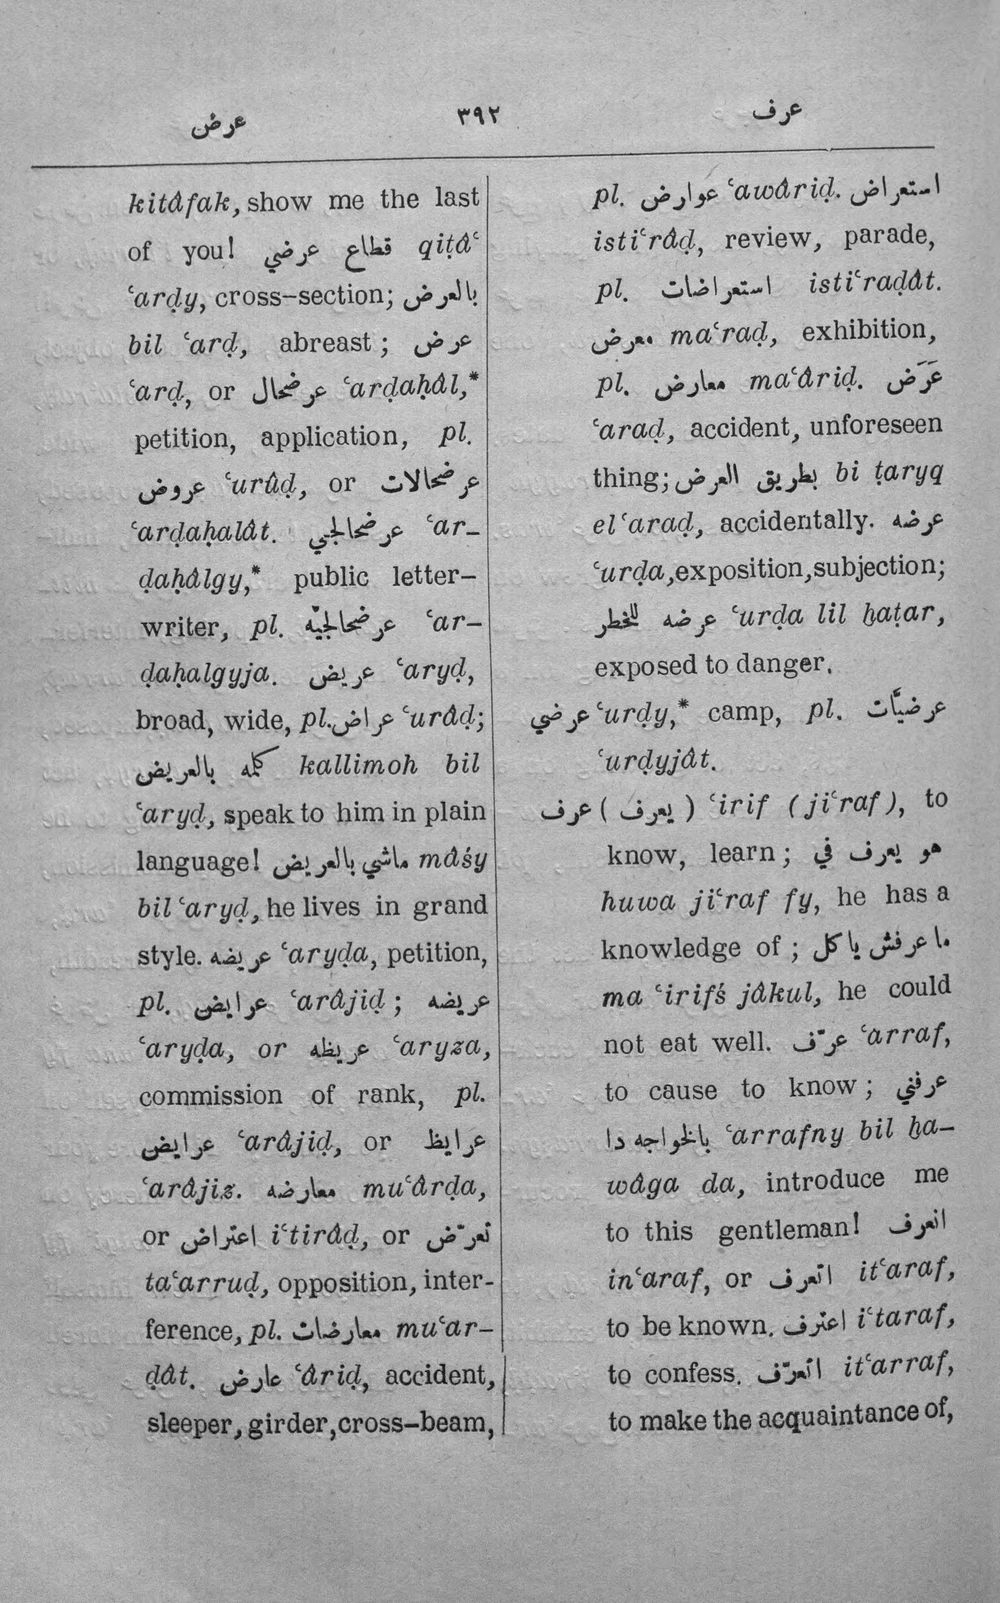 عرض ٣٩٢ عرف
kitâfak, show me the last
of you! قطاع عرضي qiṭâʿ
ʿarḍy, cross-section; بالعرض
bil ʿarḍ, abreast; عرض
ʿarḍ, or عرضحال ʿarḍaḥâl,*
petition, application, pl.
عروض ʿurûḍ, or عرضحالات
ʿarḍaḥalât. عرضحالجي ʿar-
ḍaḥâlgy,* public letter-
writer, pl. عرضحالجيّه ʿar-
ḍaḥalgyja. عريض ʿaryḍ,
broad, wide, pl. عراض ʿurâḍ;
كلمه بالعريض kallimoh bil
ʿaryḍ, speak to him in plain
language! ماشي بالعريض mâśy
bil ʿaryḍ, he lives in grand
style. عريضه ʿaryḍa, petition,
pl. عرايض ʿarâjiḍ; عريضه
ʿaryḍa, or عريظه ʿaryza,
commission of rank, pl.
عرايض ʿarâjiḍ, or عرايظ
ʿarâjiẓ. معارضه muʿârḍa,
or اعتراض iʿtirâḍ, or تعرّض
taʿarruḍ, opposition, inter-
ference, pl. معارضات muʿar-
ḍât. عارض ʿâriḍ, accident,
sleeper, girder, cross-beam,
pl. عوارض ʿawâriḍ. استعراض
istiʿrâḍ, review, parade,
pl. استعراضات istiʿraḍât.
معرض maʿraḍ, exhibition,
pl. معارض maʿâriḍ. عَرَض
ʿaraḍ, accident, unforeseen
thing; بطريق العرض bi ṭaryq
el ʿaraḍ, accidentally. عرضه
ʿurḍa, exposition, subjection;
عرضه للخطر ʿurḍa lil ḫaṭar,
exposed to danger.
عرضي ʿurḍy,* camp, pl. عرضيَّات
ʿurḍyjât.
عرف (يعرف) ʿirif (jiʿraf), to
know, learn; هو يعرف في
huwa jiʿraf fy, he has a
knowledge of; ما عرفش ياكل
ma ʿirifś jâkul, he could
not eat well. عرّف ʿarraf,
to cause to know; عرفني
بالخواجه دا ʿarrafny bil ḫa-
wâga da, introduce me
to this gentleman! انعرف
inʿaraf, or اتعرف itʿaraf,
to be known. اعترف iʿtaraf,
to confess. اتعرّف itʿarraf,
to make the acquaintance of,